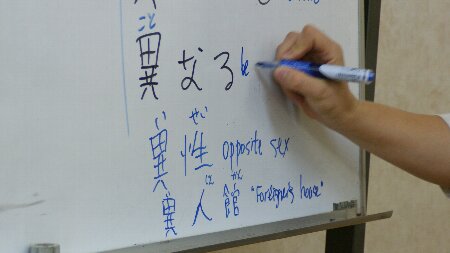 こと
異なる be
せい
異性 opposite sex
じん かん
異人館 "Foreigner's house"